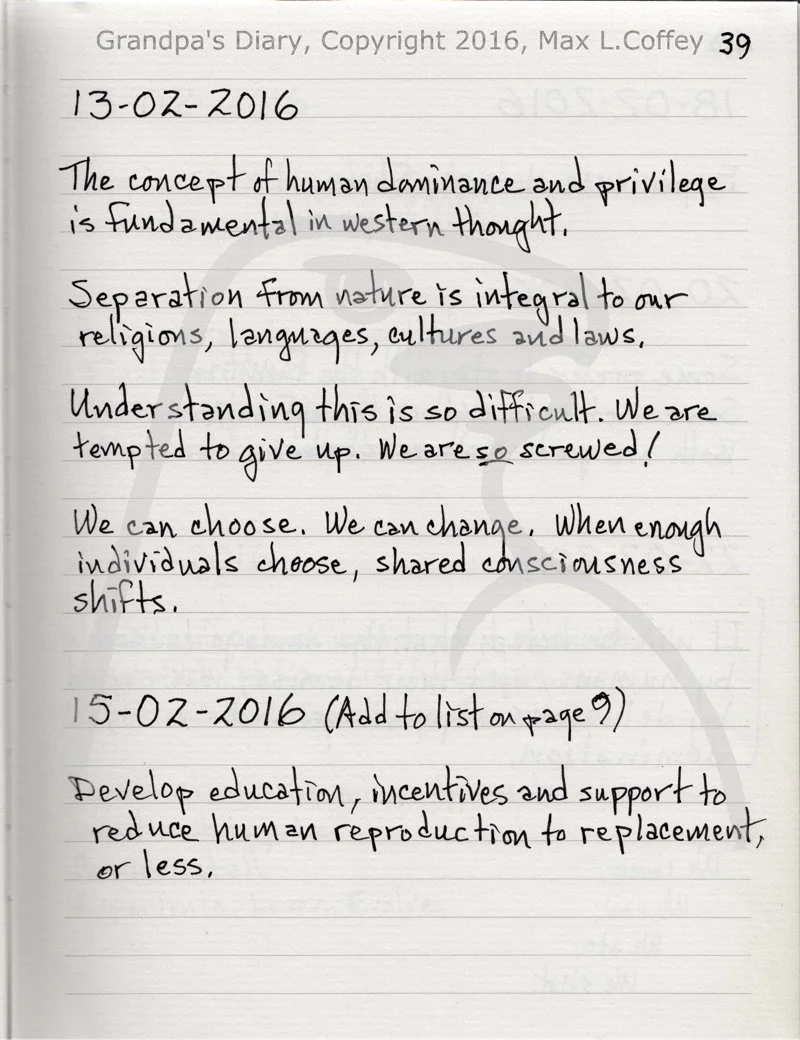 Grandpa's Diary, Copyright 2016, Max L.Coffey 39
13-02-2016
The concept of human dominance and privilege
is fundamental in western thought.
Separation from nature is integral to our
religions, languages, cultures and laws.
Understanding this is so difficult. We are
tempted to give up. We are so screwed!
We can choose. We can change. When enough
individuals choose, shared consciousness
shifts.
15-02-2016 (Add to list on page 9)
Develop education, incentives and support to
reduce human reproduction to replacement,
or less.